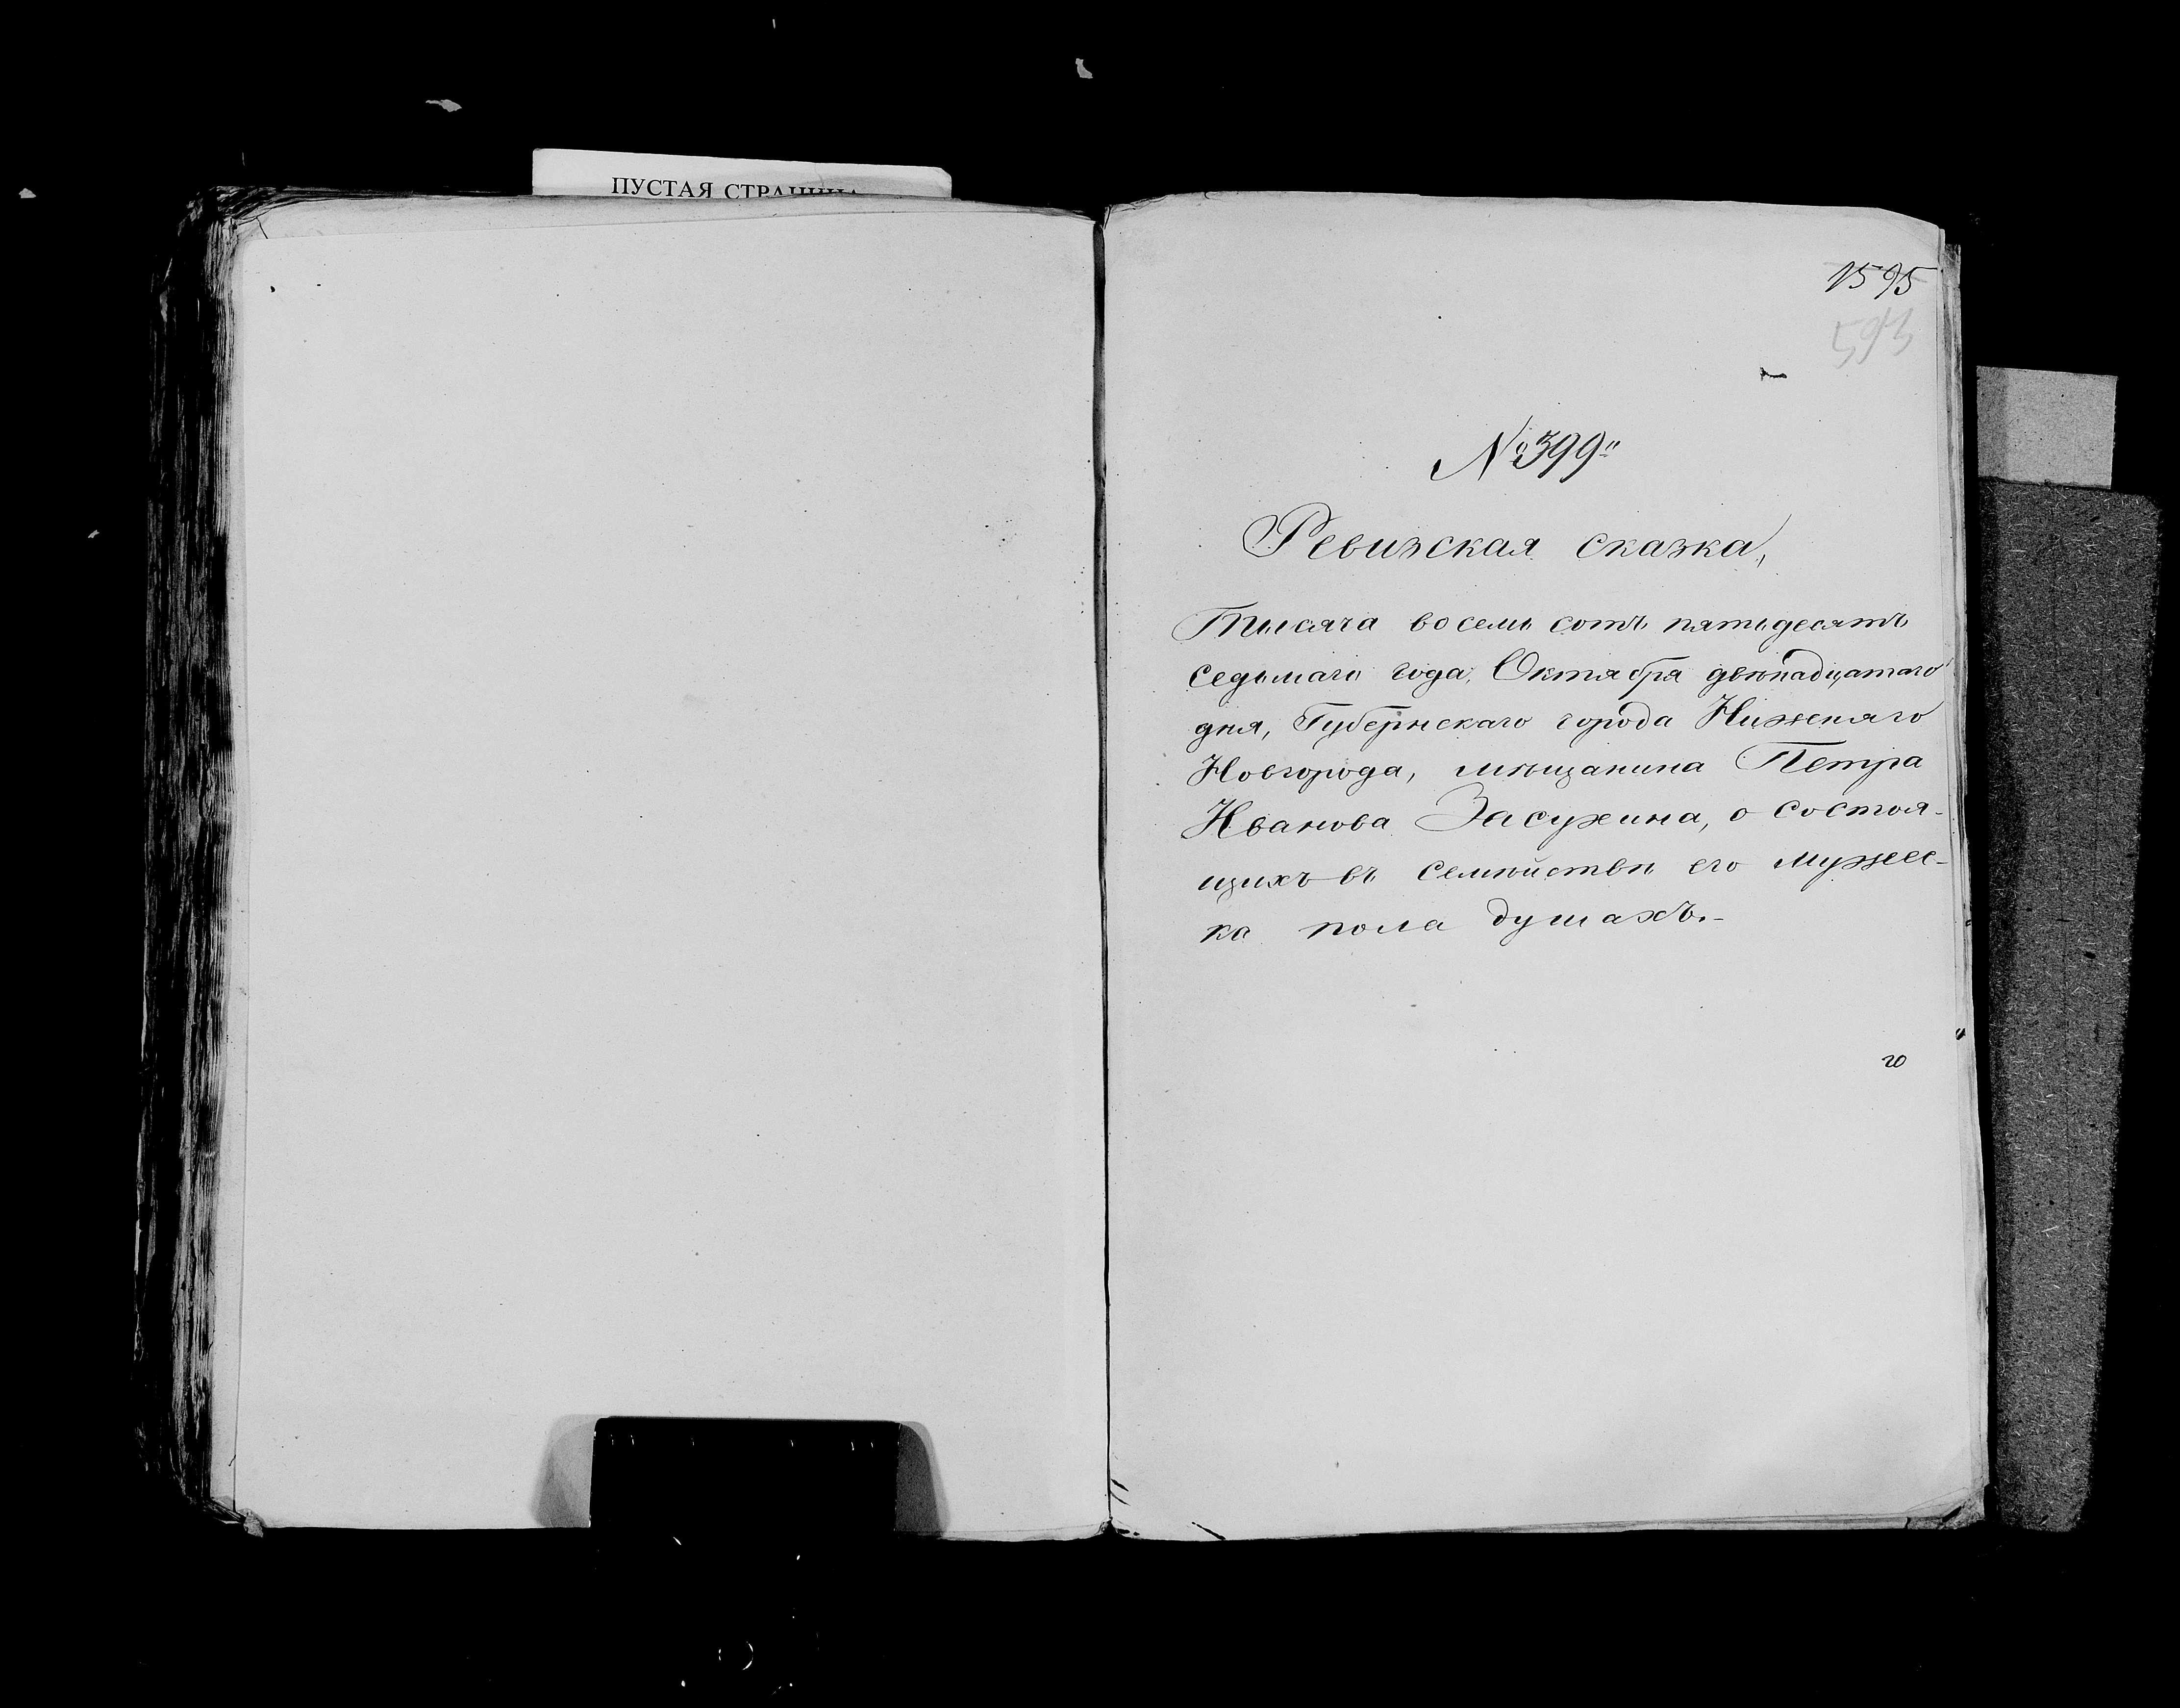 ПУСТАЯ СТРАНИЦА
1595
593
№ 399"
Ревизская сказка,
Тысяча восемь сотъ пятьдесятъ
седьмаго года, Октября двѣнадцатаго
дня, Губернскаго города Нижняго
Новгорода, мѣщанина Петра
Иванова Засухина, о состоя-
щихъ въ семѣйствѣ его мужес-
ка пола душахъ.-
го